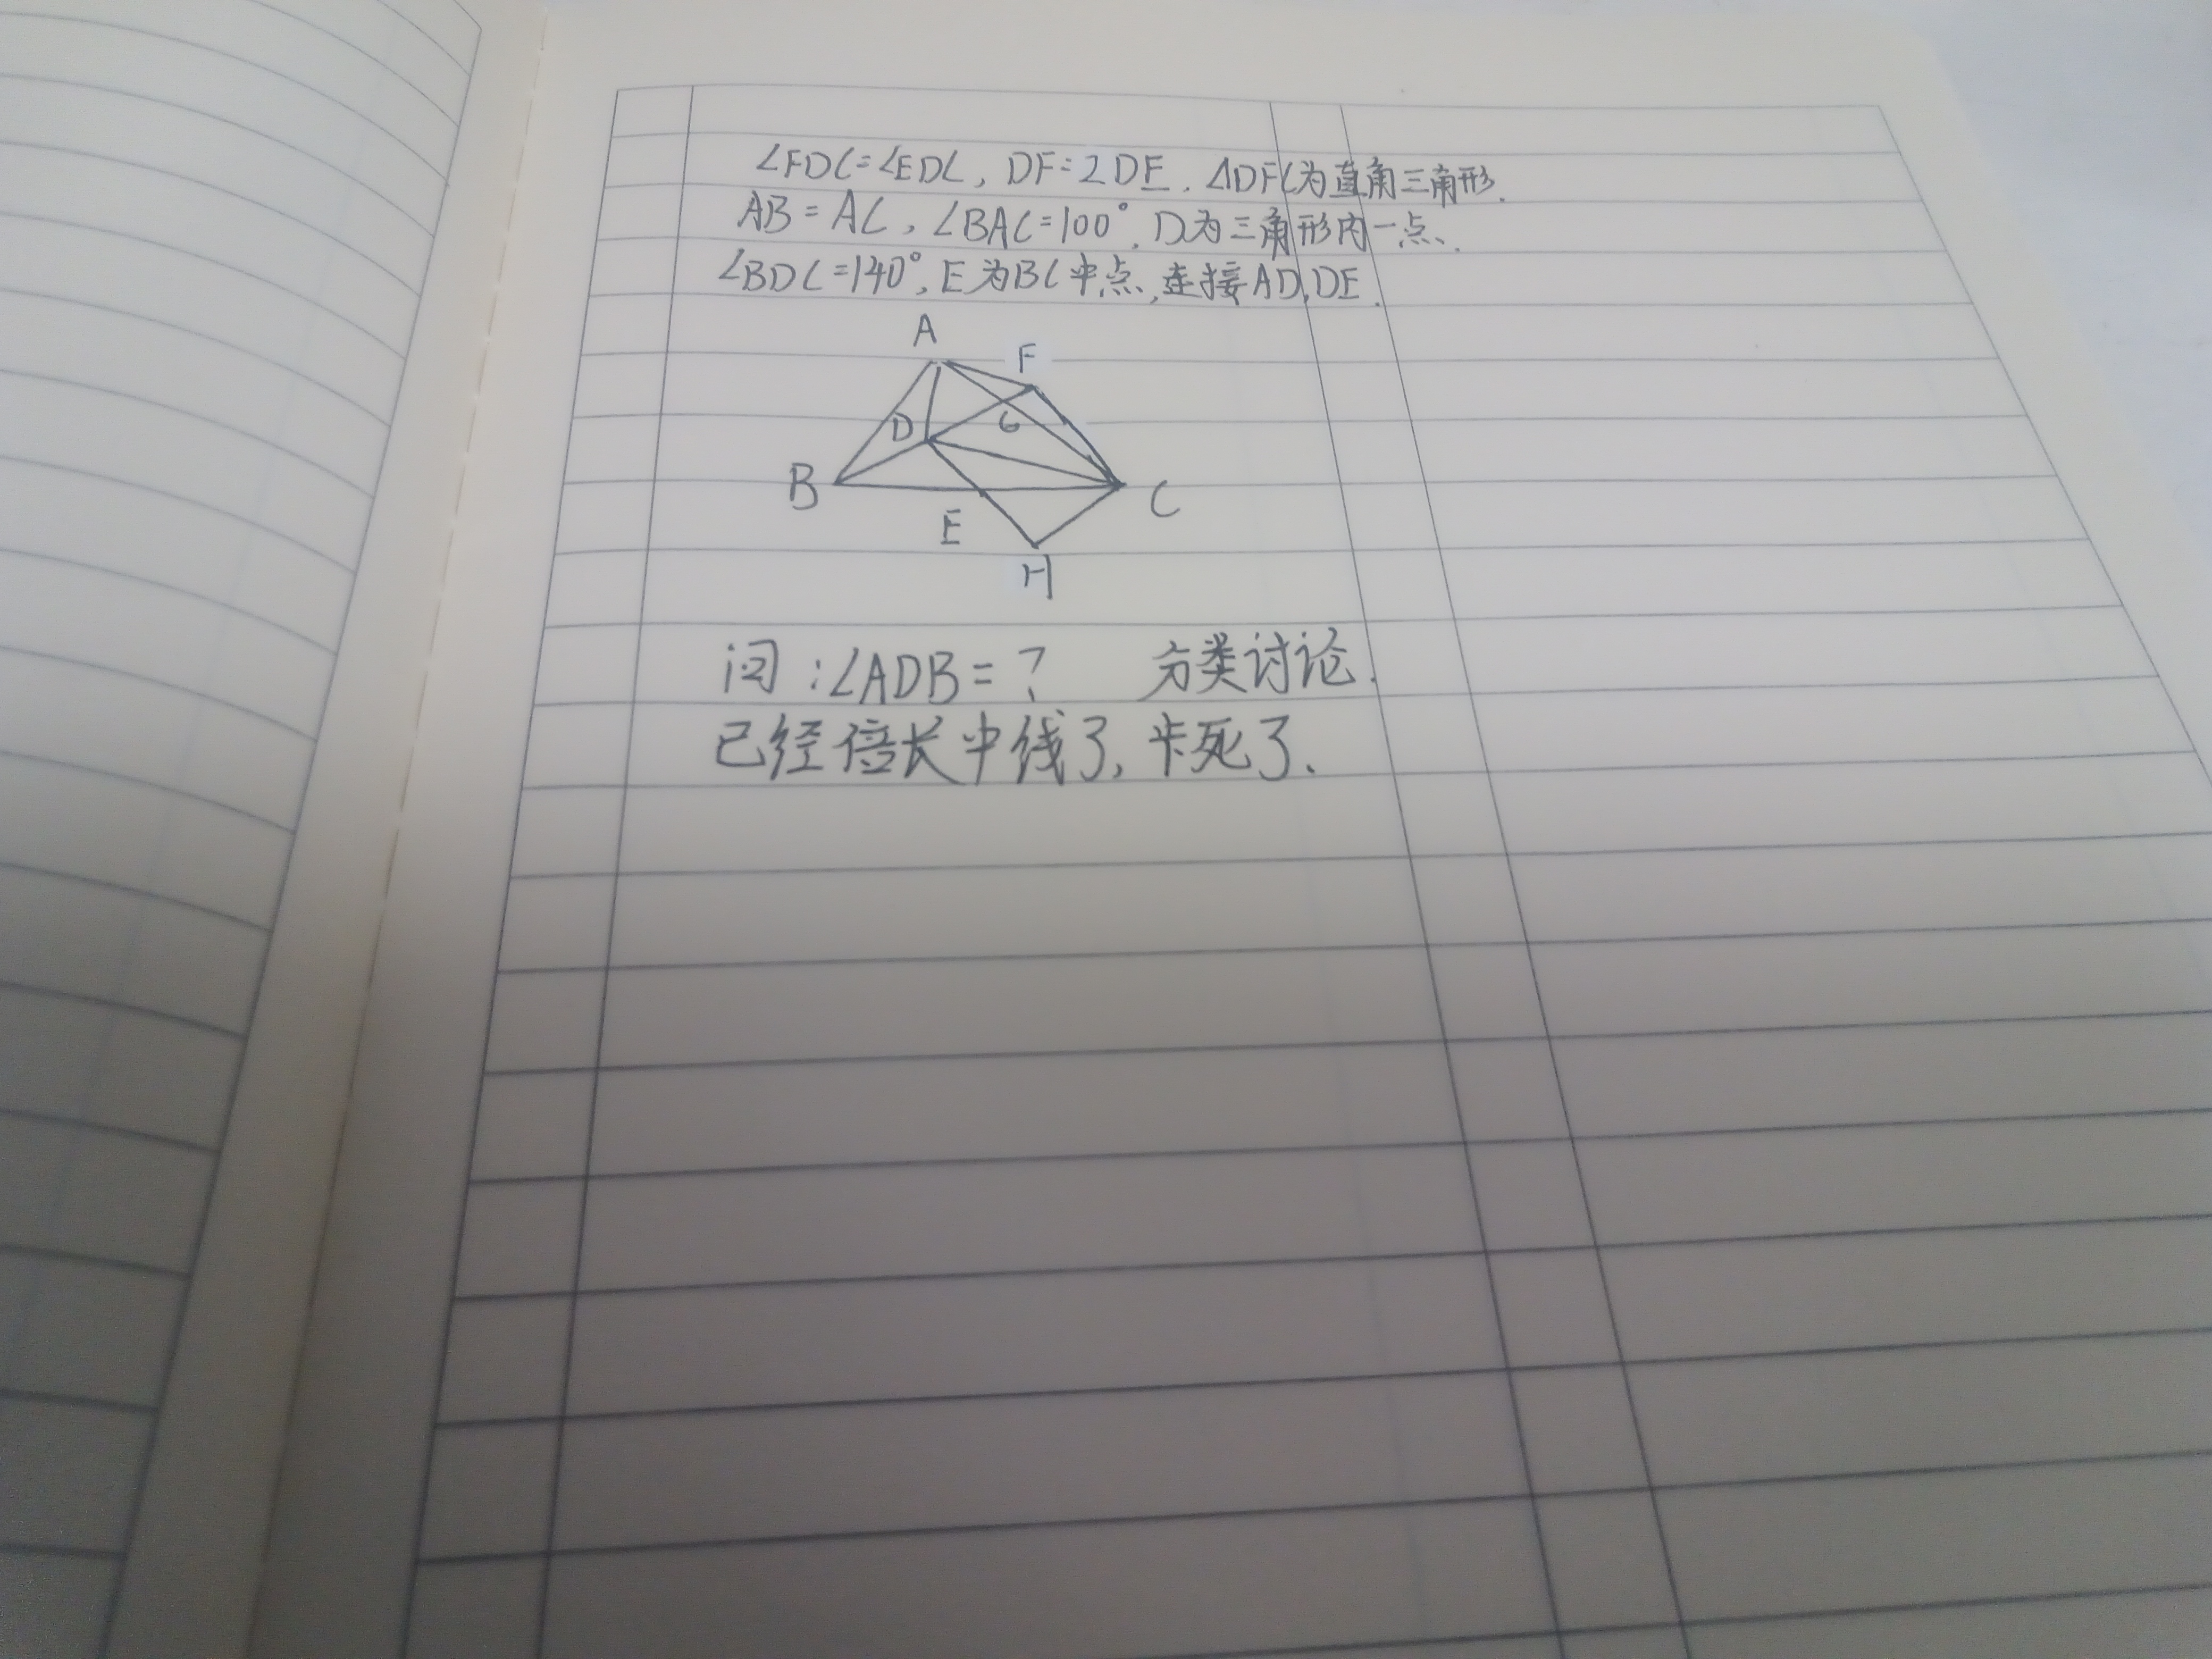 ∠FDC=∠EDC, DF=2DE. △DFC为直角三角形.
AB=AC, ∠BAC=100°, D为三角形内一点.
∠BDC=140°, E为BC中点, 连接AD, DE.
A
F
D
G
B
C
E
H
问:∠ADB=? 分类讨论.
已经倍长中线了, 卡死了.